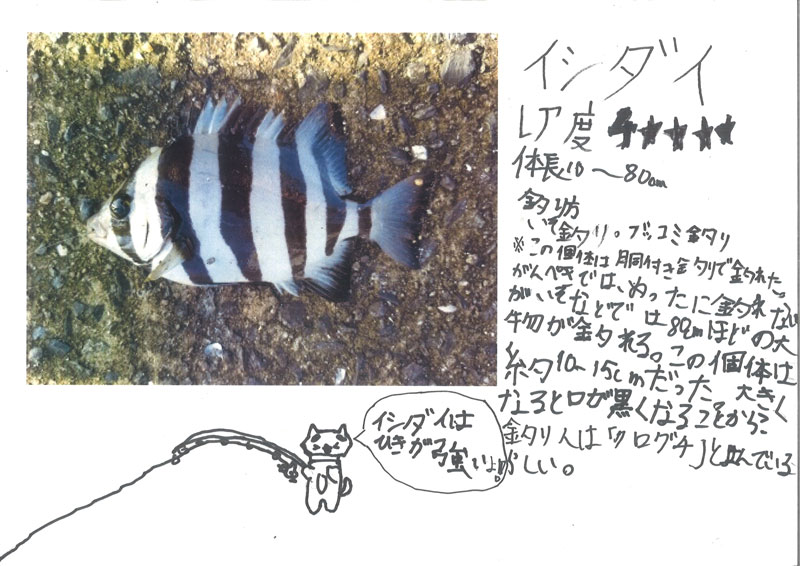 イシダイ
レア度 4★★★★
体長10～80cm
釣り方
いそ釣り。ブッコミ釣り
※この個体は胴付き釣りで釣れた。
がんぺきでは、めったに釣れない
がいそなどでは80cmほどの大
物が釣れる。この個体は
約10～15cmだった 大きく
なると口が黒くなることから?
釣り人は「クログチ」と呼んでいる
らしい。
イシダイは
ひきが強いよ。